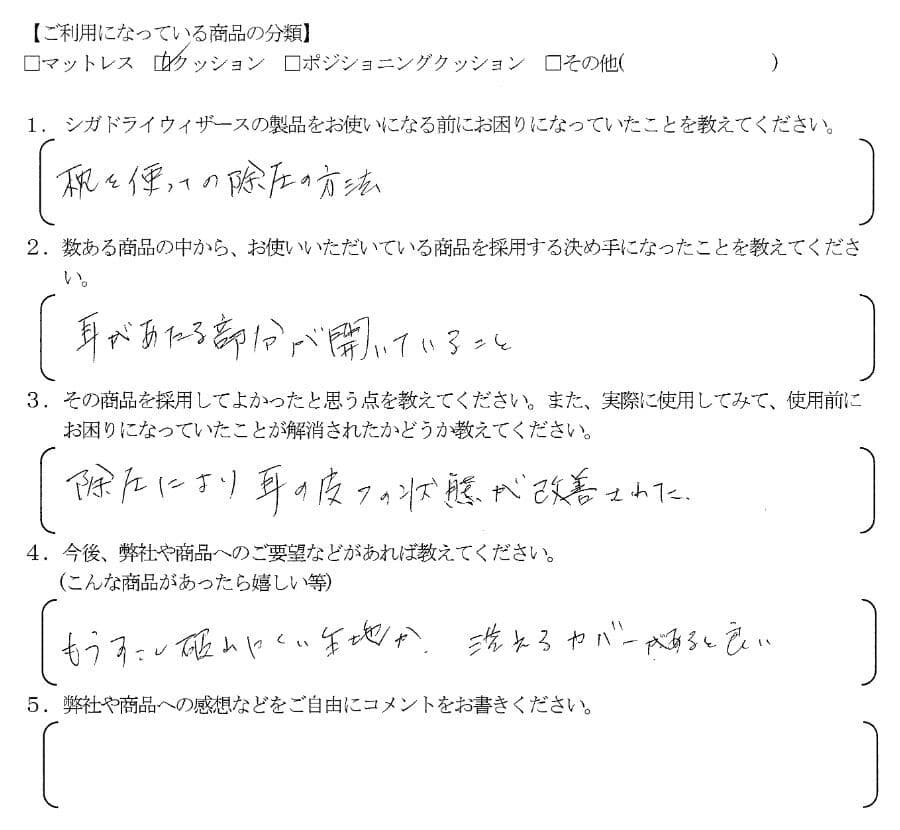 【ご利用になっている商品の分類】
□マットレス ☑クッション □ポジショニングクッション □その他( )
1．シガドライウィザースの製品をお使いになる前にお困りになっていたことを教えてください。
枕を使っての除圧の方法
2．数ある商品の中から、お使いいただいている商品を採用する決め手になったことを教えてくださ
い。
耳があたる部分が開いていること
3．その商品を採用してよかったと思う点を教えてください。また、実際に使用してみて、使用前に
お困りになっていたことが解消されたかどうか教えてください。
除圧により耳の皮フの状態が改善された.
4．今後、弊社や商品へのご要望などがあれば教えてください。
(こんな商品があったら嬉しい等)
もうすこし破れにくい生地か. 洗えるカバーがあると良い
5．弊社や商品への感想などをご自由にコメントをお書きください。